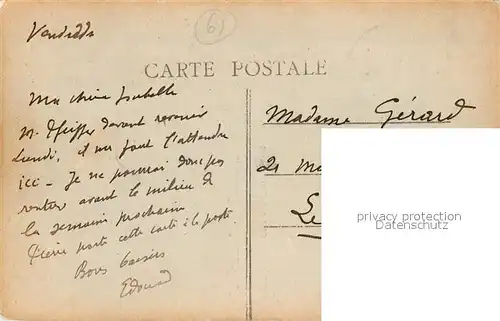 Vendredi
61
CARTE POSTALE
Ma chère Isabelle
M. Pfeiffer devant revenir
Lundi, il me faut l'attendre
ici - Je ne pourrai donc pas
rentrer avant le milieu de
la semaine prochaine
Pierre porte cette carte à la poste.
Bons baisers
Edouard
Madame Gérard
21
privacy protection
Datenschutz